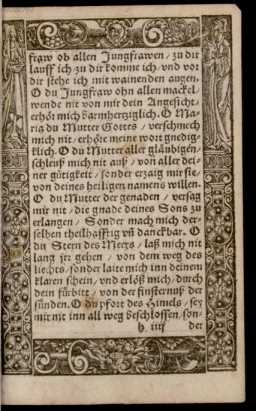 fraw ob allen Jungfrawen / zu dir
lauff ich / zu dir komme ich / vnd vor
dir stehe ich mit wainenden augen.
O du Jungfraw ohn allen mackel /
wende nit von mir dein Angesicht /
erhör mich barmhertziglich. O Ma-
ria du Mutter Gottes / verschmech
mich nit / erhöre meine wort gnedig-
klich. O du Mutter aller gläubigen /
schleuß mich nit auß / von aller dei-
ner gütigkeit / sonder erzaig mir sie /
von deines heiligen namens willen.
O du Mutter der genaden / versag
mir nit / die gnade deines Sons zu
erlangen / Sonder mach mich der-
selben theilhafftig vñ danckbar. O
du Stern des Meers / laß mich nit
lang irr gehen / von dem weg des
liechts / sonder laite mich inn deinem
klaren schein / vnd erlöß mich / durch
dein fürbitt / von der finsternuß der
sünden. O du pfort des Himels / sey
mir nit inn all weg beschlossen / son-
h. iiij der